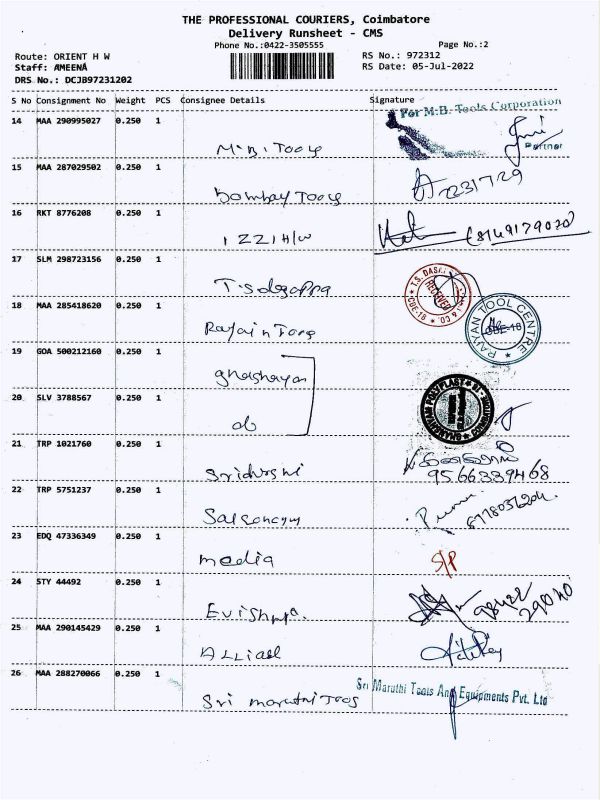 THE PROFESSIONAL COURIERS, Coimbatore
Delivery Runsheet - CMS
Phone No.:0422-3505555
Page No.:2
Route: ORIENT H W
RS No.: 972312
Staff: AMEENA
RS Date: 05-Jul-2022
DRS No.: DCJB97231202
S No Consignment No Weight PCS Consignee Details Signature
14 MAA 290995027 0.250 1
For M.B. Tools Corporation
Partner
M.B. Tools
15 MAA 287029502 0.250 1
Bombay Tools
16 RKT 8776208 0.250 1
IZZI H/W
8149179020
17 SLM 298723156 0.250 1
T.S
RECEIVED
CBE-18
18 MAA 285418620 0.250 1
RAIYAN TOOL CENTRE
CBE-18
19 GOA 500212160 0.250 1
20 SLV 3788567 0.250 1
GHANSHYAM POLYPLAST
do
21 TRP 1021760 0.250 1
9566339468
22 TRP 5751237 0.250 1
23 EDQ 47336349 0.250 1
media
24 STY 44492 0.250 1
25 MAA 290145429 0.250 1
26 MAA 288270066 0.250 1
Sri Maruthi Tools And Equipments Pvt. Ltd
Sri maruthi Tools